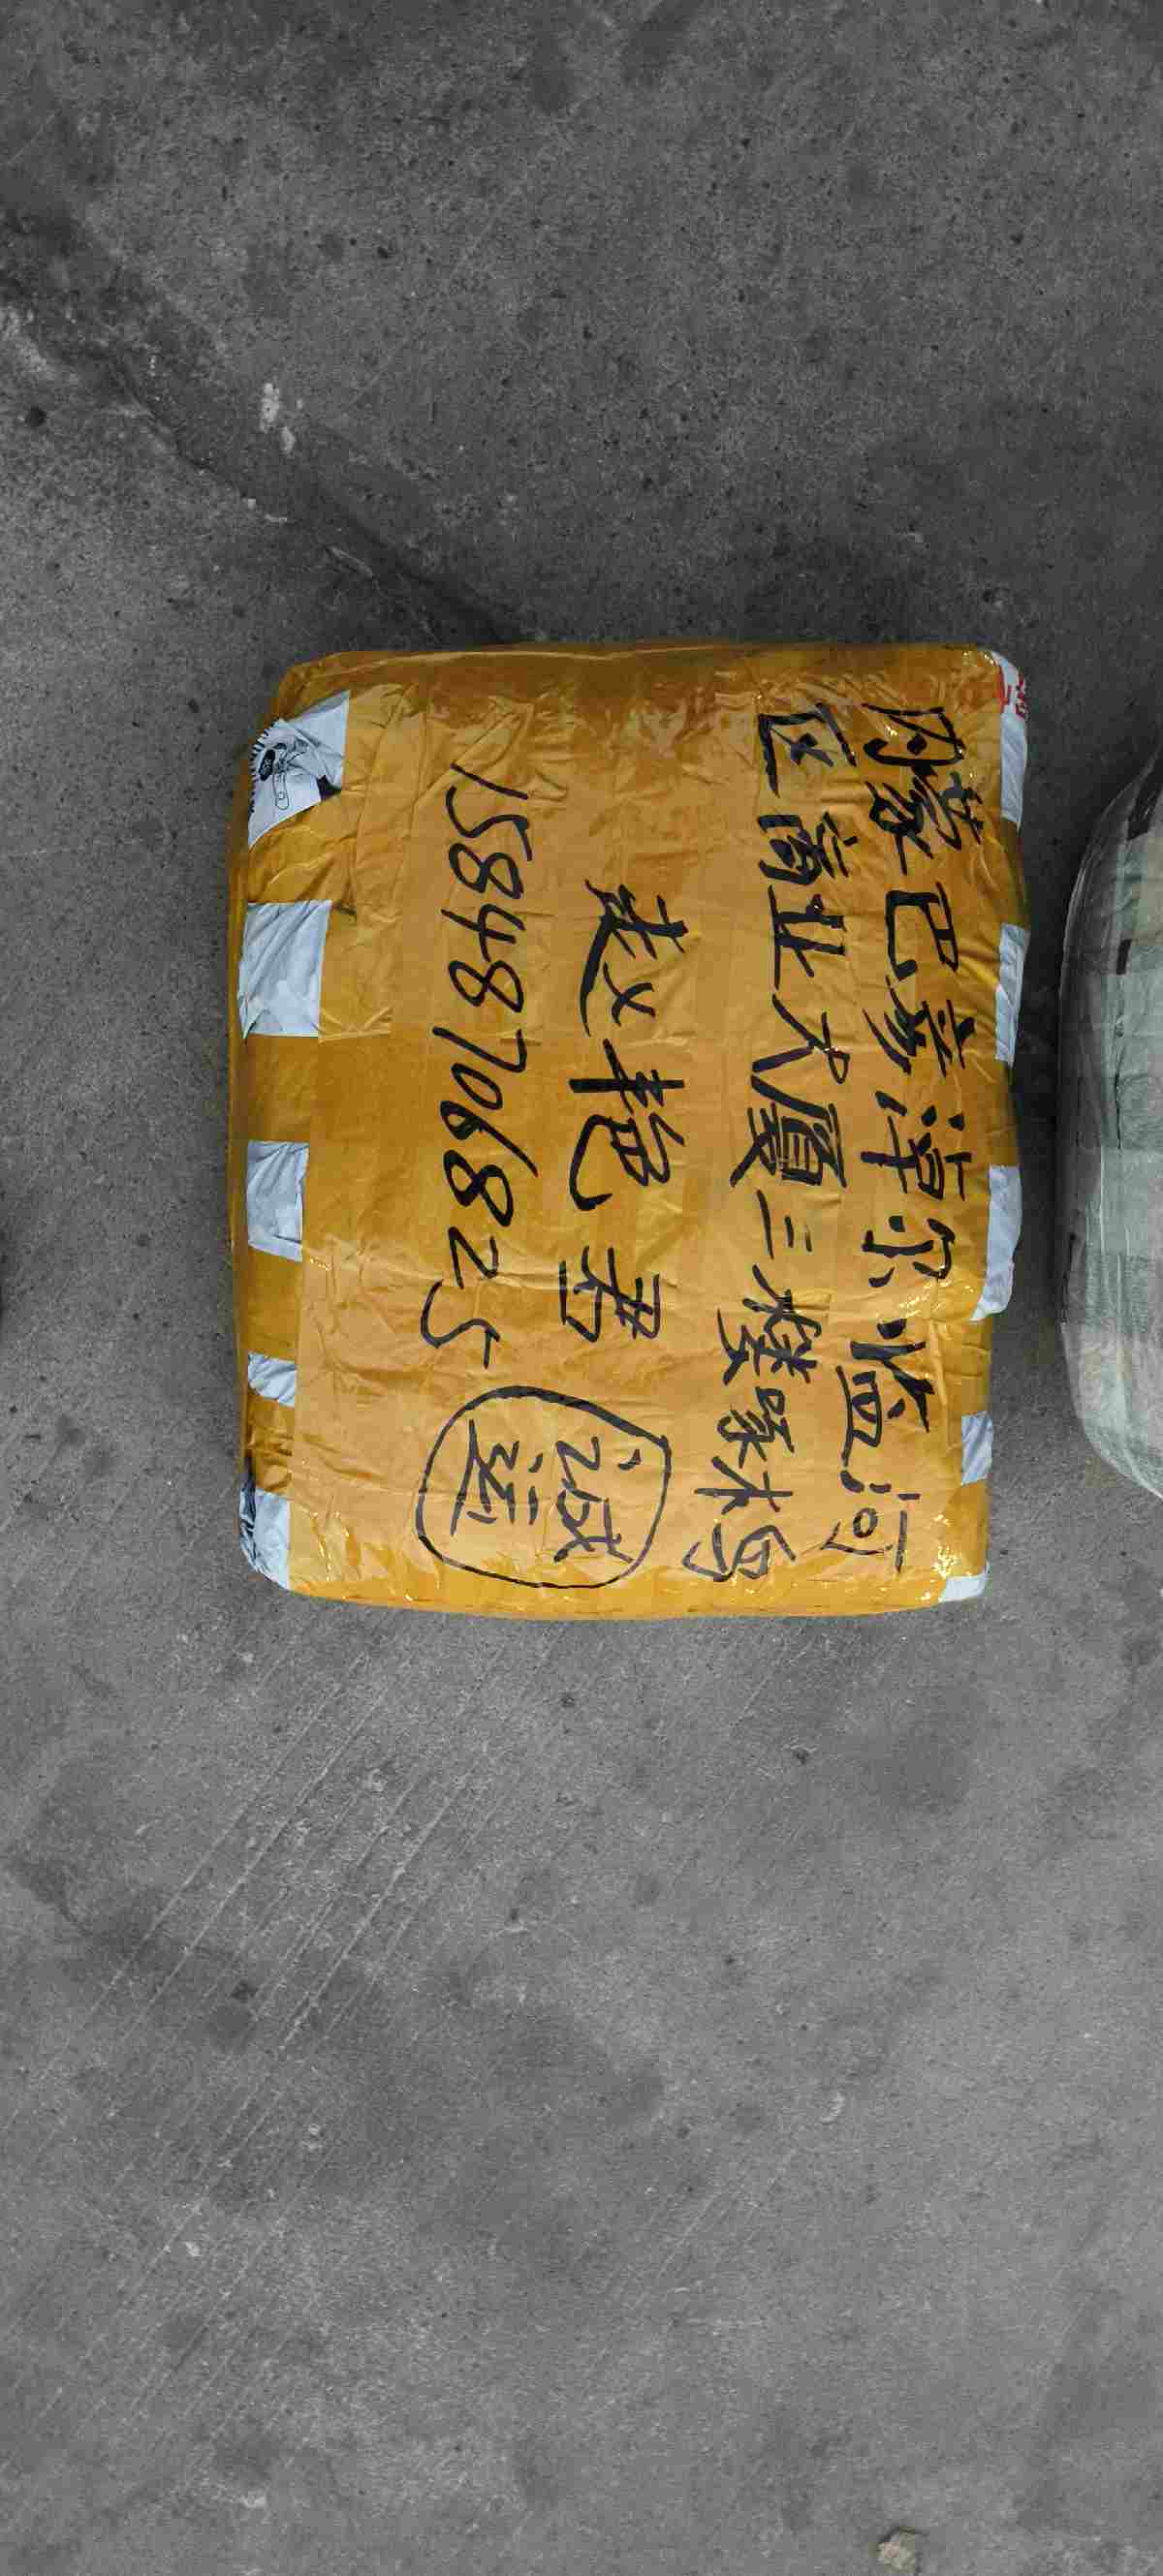 内蒙巴彦淖尔临河
区商业大厦三楼梁木号
赵艳君
15848706825
诚
运